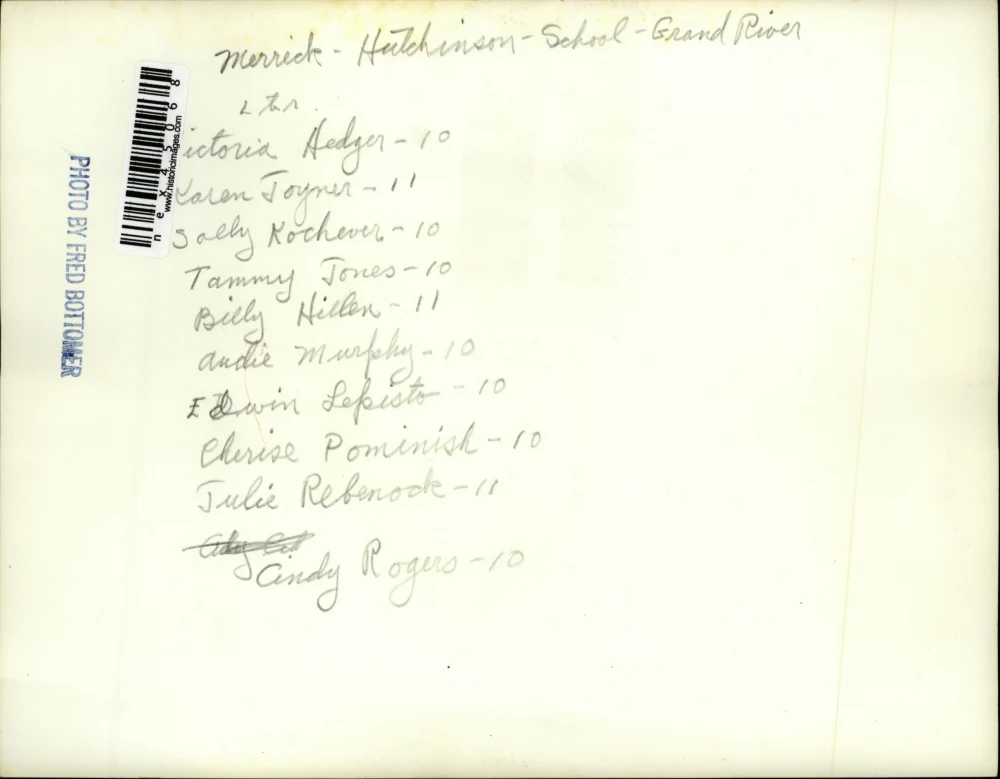 Merrick - Hutchinson - School - Grand River
L to r.
ictoria Hedger - 10
Karen Joyner - 11
Sally Kochever - 10
Tammy Jones - 10
Billy Hillen - 11
Audie Murphy - 10
Edwin Lepisto - 10
Cherise Pominish - 10
Julie Rebenock - 11
Cindy Rogers - 10
PHOTO BY FRED BOTTOMER
nex45068
www.historicimages.com